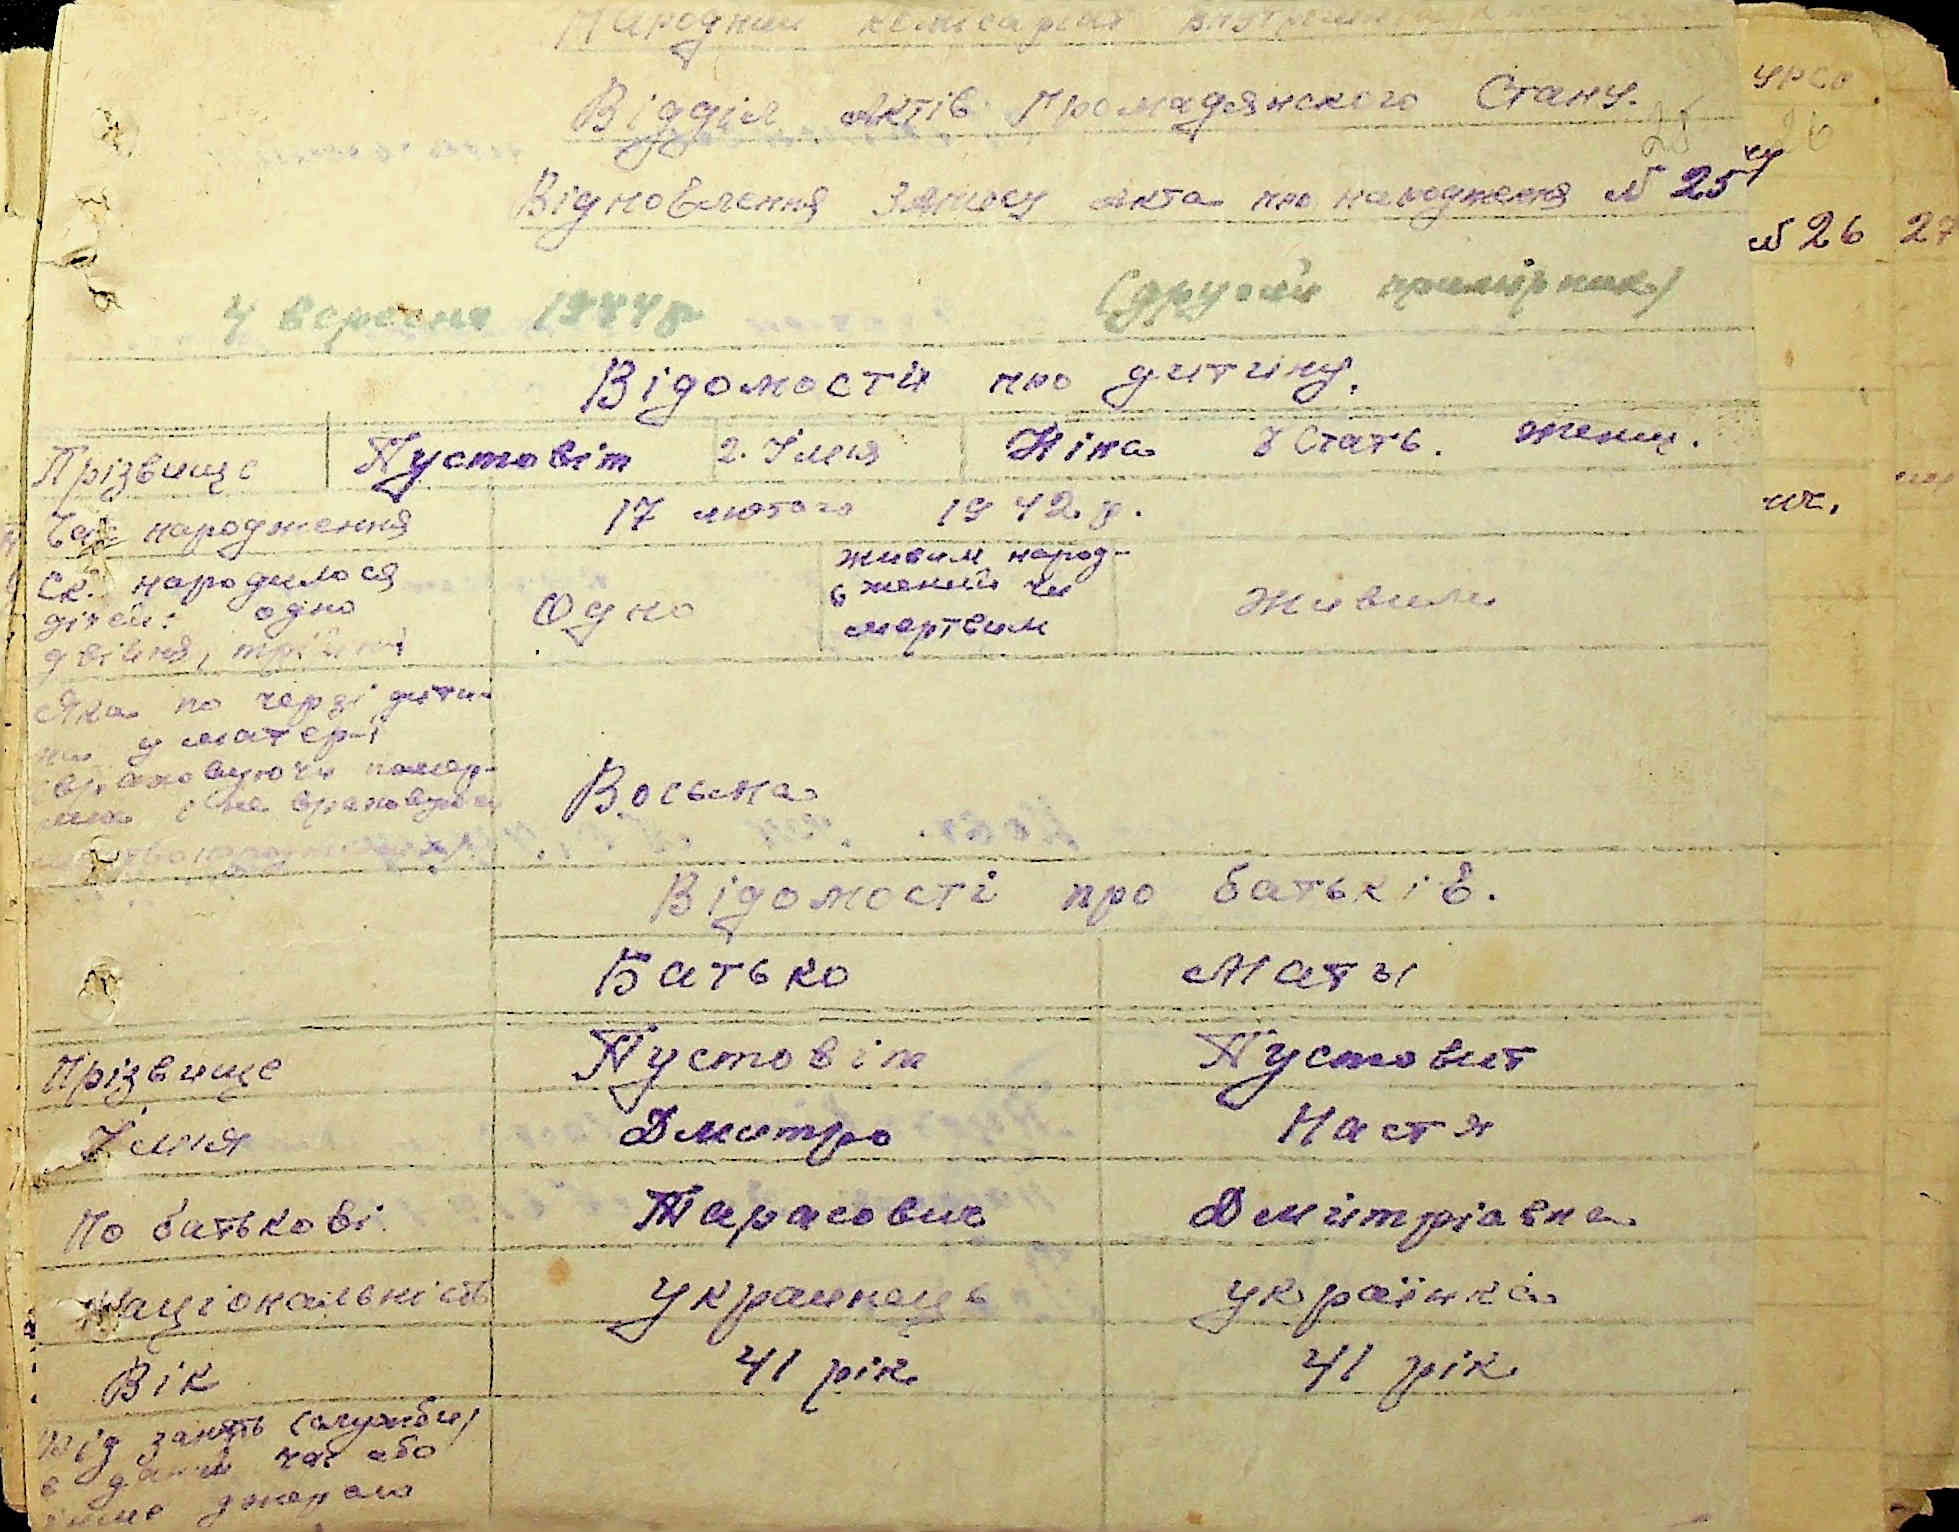 Народний комісаріат внутрішніх
Відділ Актів Громадянского Стану.
УРСР
25 26
Відновлення запису акта про народження № 25
№ 26 27
4 вересня 1944 р (другий примірник)
Відомости про дитину.
Прізвище Пустовіт 2. Імя Ніна 3 Стать. женщ.
Час народження 17 лютого 1942 р.
Ск. народилося
дітей: одно
двійня, трійня
Одно
живим народ-
6 жений чи
мертвим
Живим
Яка по черзі дити-
на у матері
враховуючи помер-
ших і не враховуючи
Восьма
Відомості про батьків.
Батько Маты
Прізвище Пустовіт Пустовит
Імия Дмитро Настя
По батькові Тарасович Дмитріавна
Національність украинець українка
Вік 41 рік 41 рік
Від занять (служби)
в даний час або
інше джерело